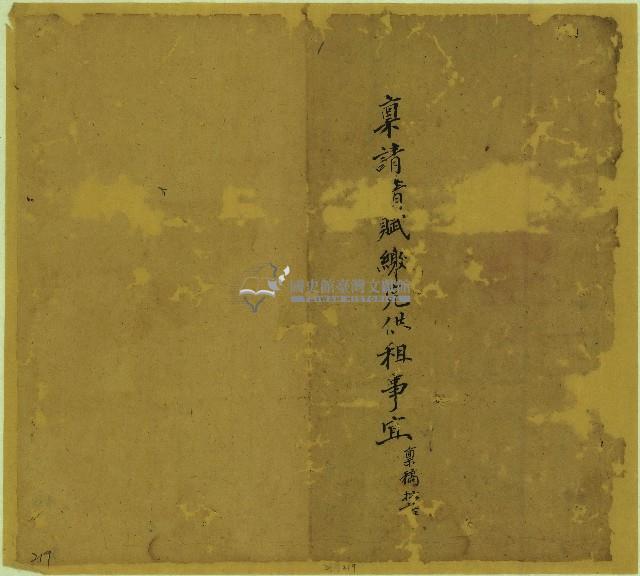 稟請責賦繳完供租事宜
稟稿
國史館臺灣文獻館
TAIWAN HISTORICA
219
219